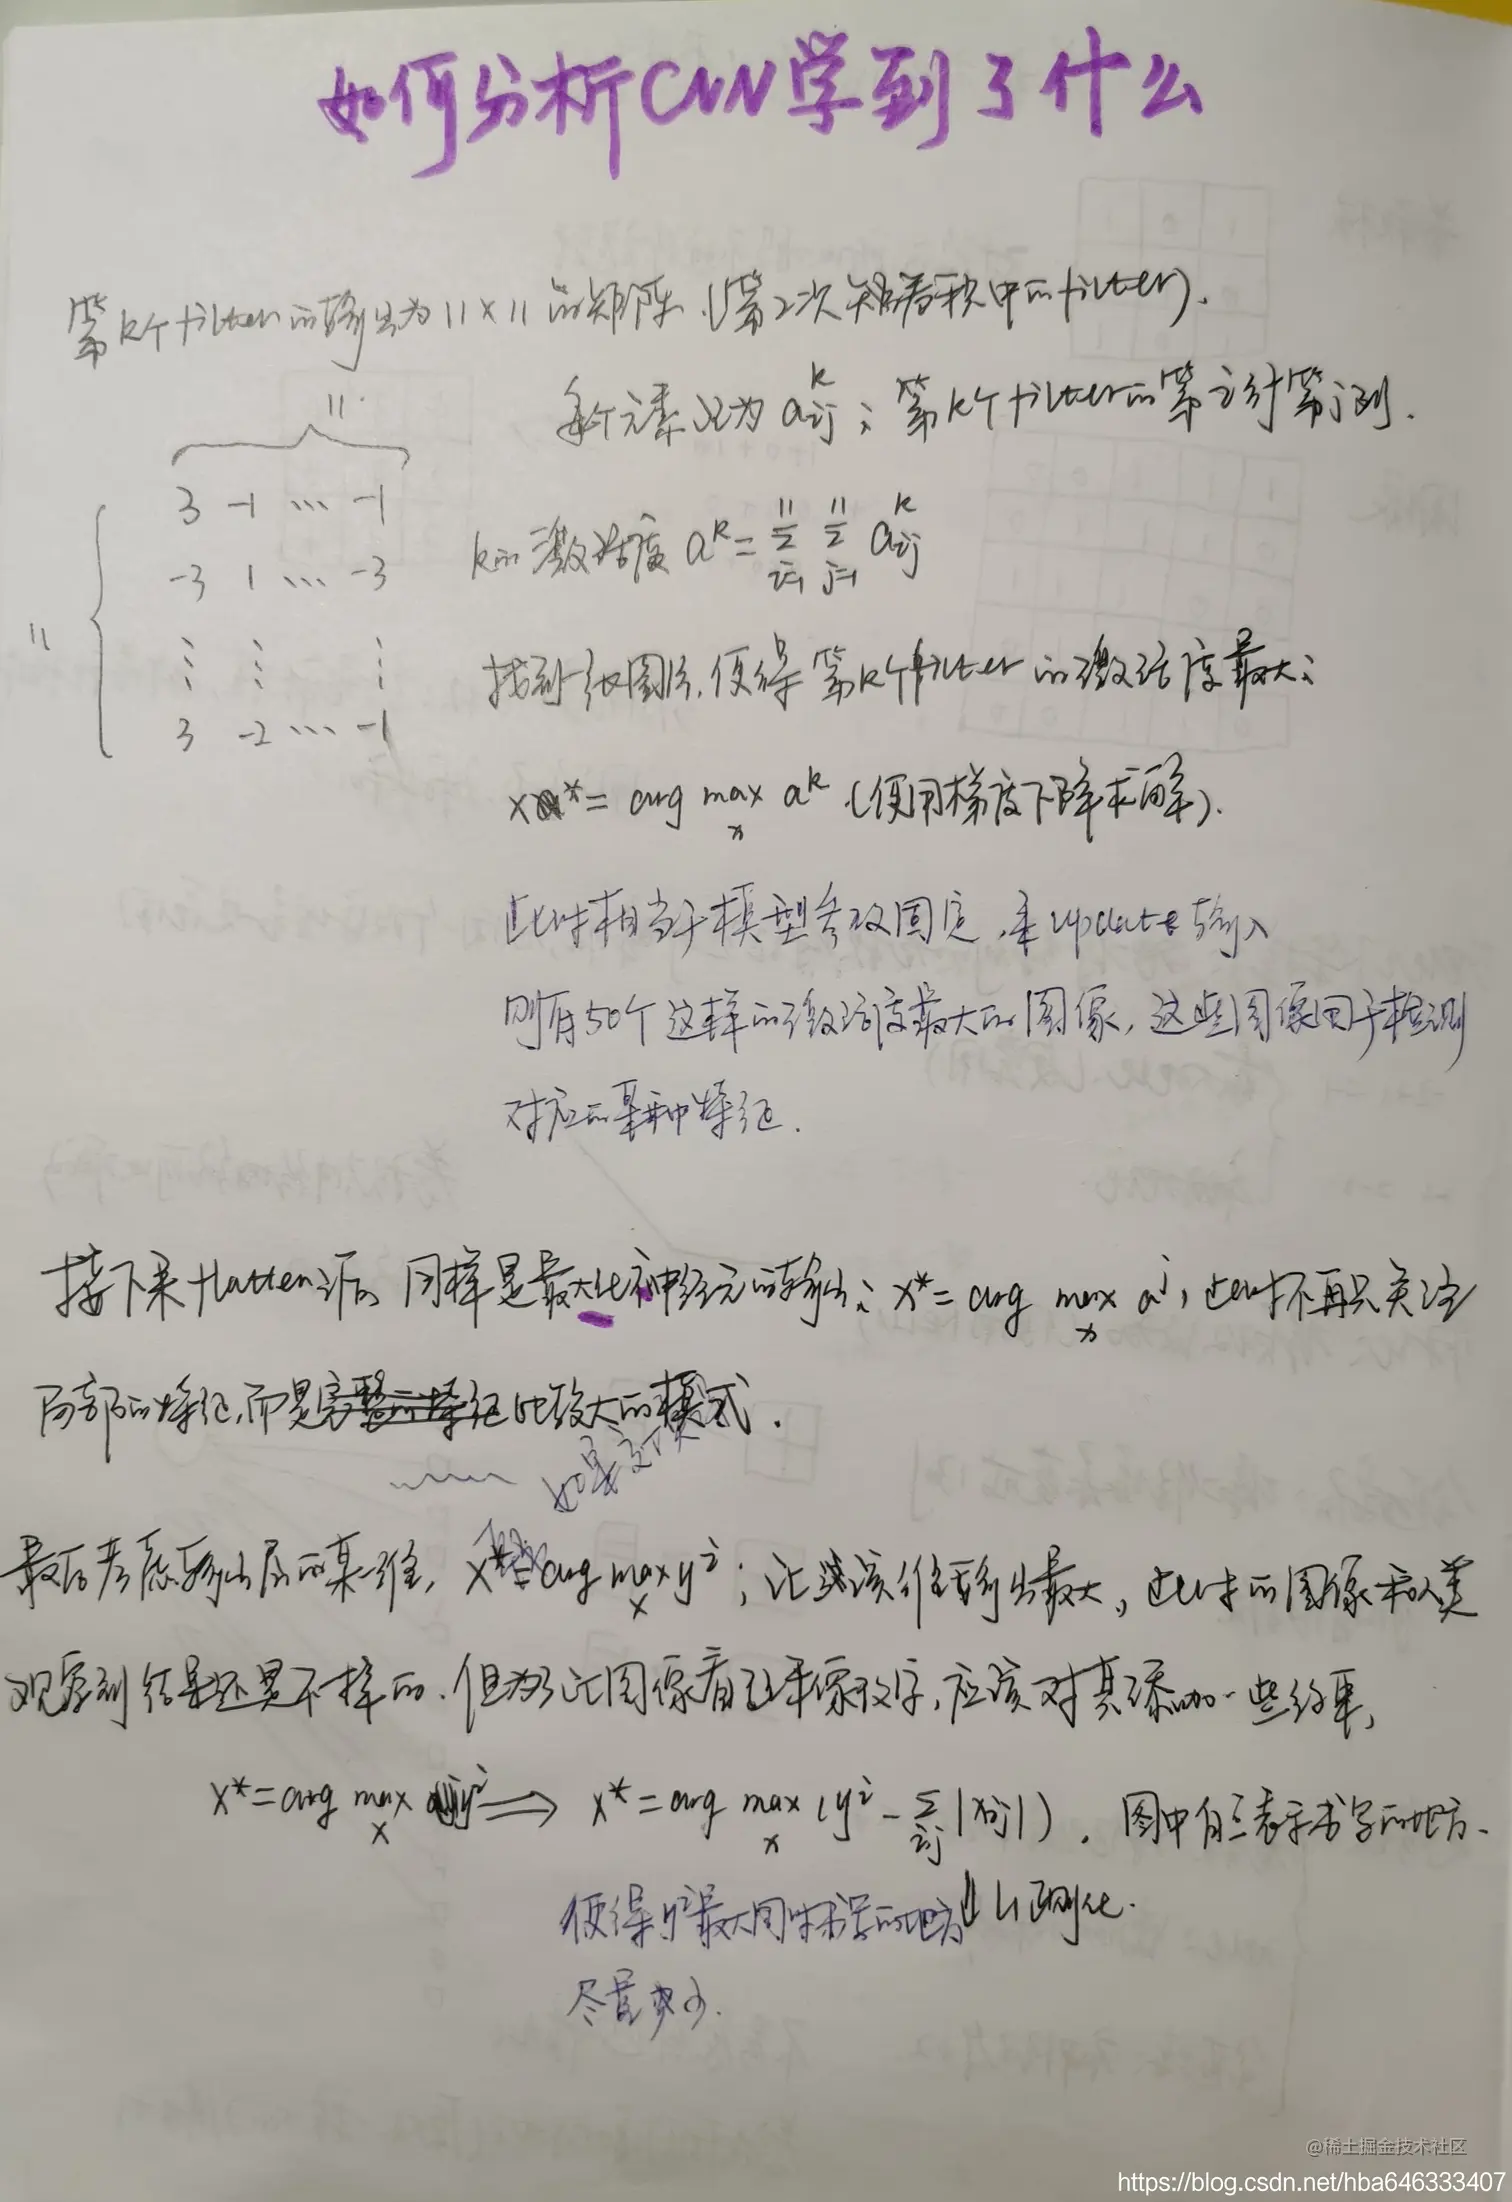 如何分析CNN学到了什么
第k个filter的输出为11×11的矩阵.(第2次卷积中的filter).
每个元素记为 a_{ij}^k ; 第k个filter的第i行第j列.
11
3 -1 … -1
k的激活度 a^k = \sum_{i=1}^{11} \sum_{j=1}^{11} a_{ij}^k
-3 1 … -3
11
⋮ ⋮ ⋮
找到一张图片,使得第k个filter的激活度最大;
3 -2 … -1
x^* = arg max_x a^k (使用梯度下降求解).
此时相当于模型参数固定,来update输入
则有50个这样的激活度最大的图像,这些图像用于检测
对应的某种特征.
接下来flatten后, 同样是最大化神经元的输出; x^* = arg max_x a^j, 此时不再只关注
局部的特征,而是比较大的模式.
最后考虑输出层的某一维, x^* = arg max_x y^i ; 让该维输出最大, 此时的图像和人类
观察到结果还是不一样的. 但为了让图像看起来像数字,应该对其添加一些约束,
x^* = arg max_x y^i ⟹ x^* = arg max_x (y^i - \sum_{ij} |x_{ij}|) . 图中白色表示书写的地方.
使得y^i最大同时书写的地方 ⇓ L1正则化.
尽量少.
@稀土掘金技术社区
https://blog.csdn.net/hba646333407